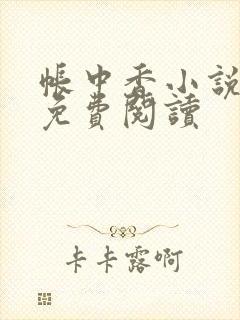 帳中香小說
免費閱讀
卡卡露啊